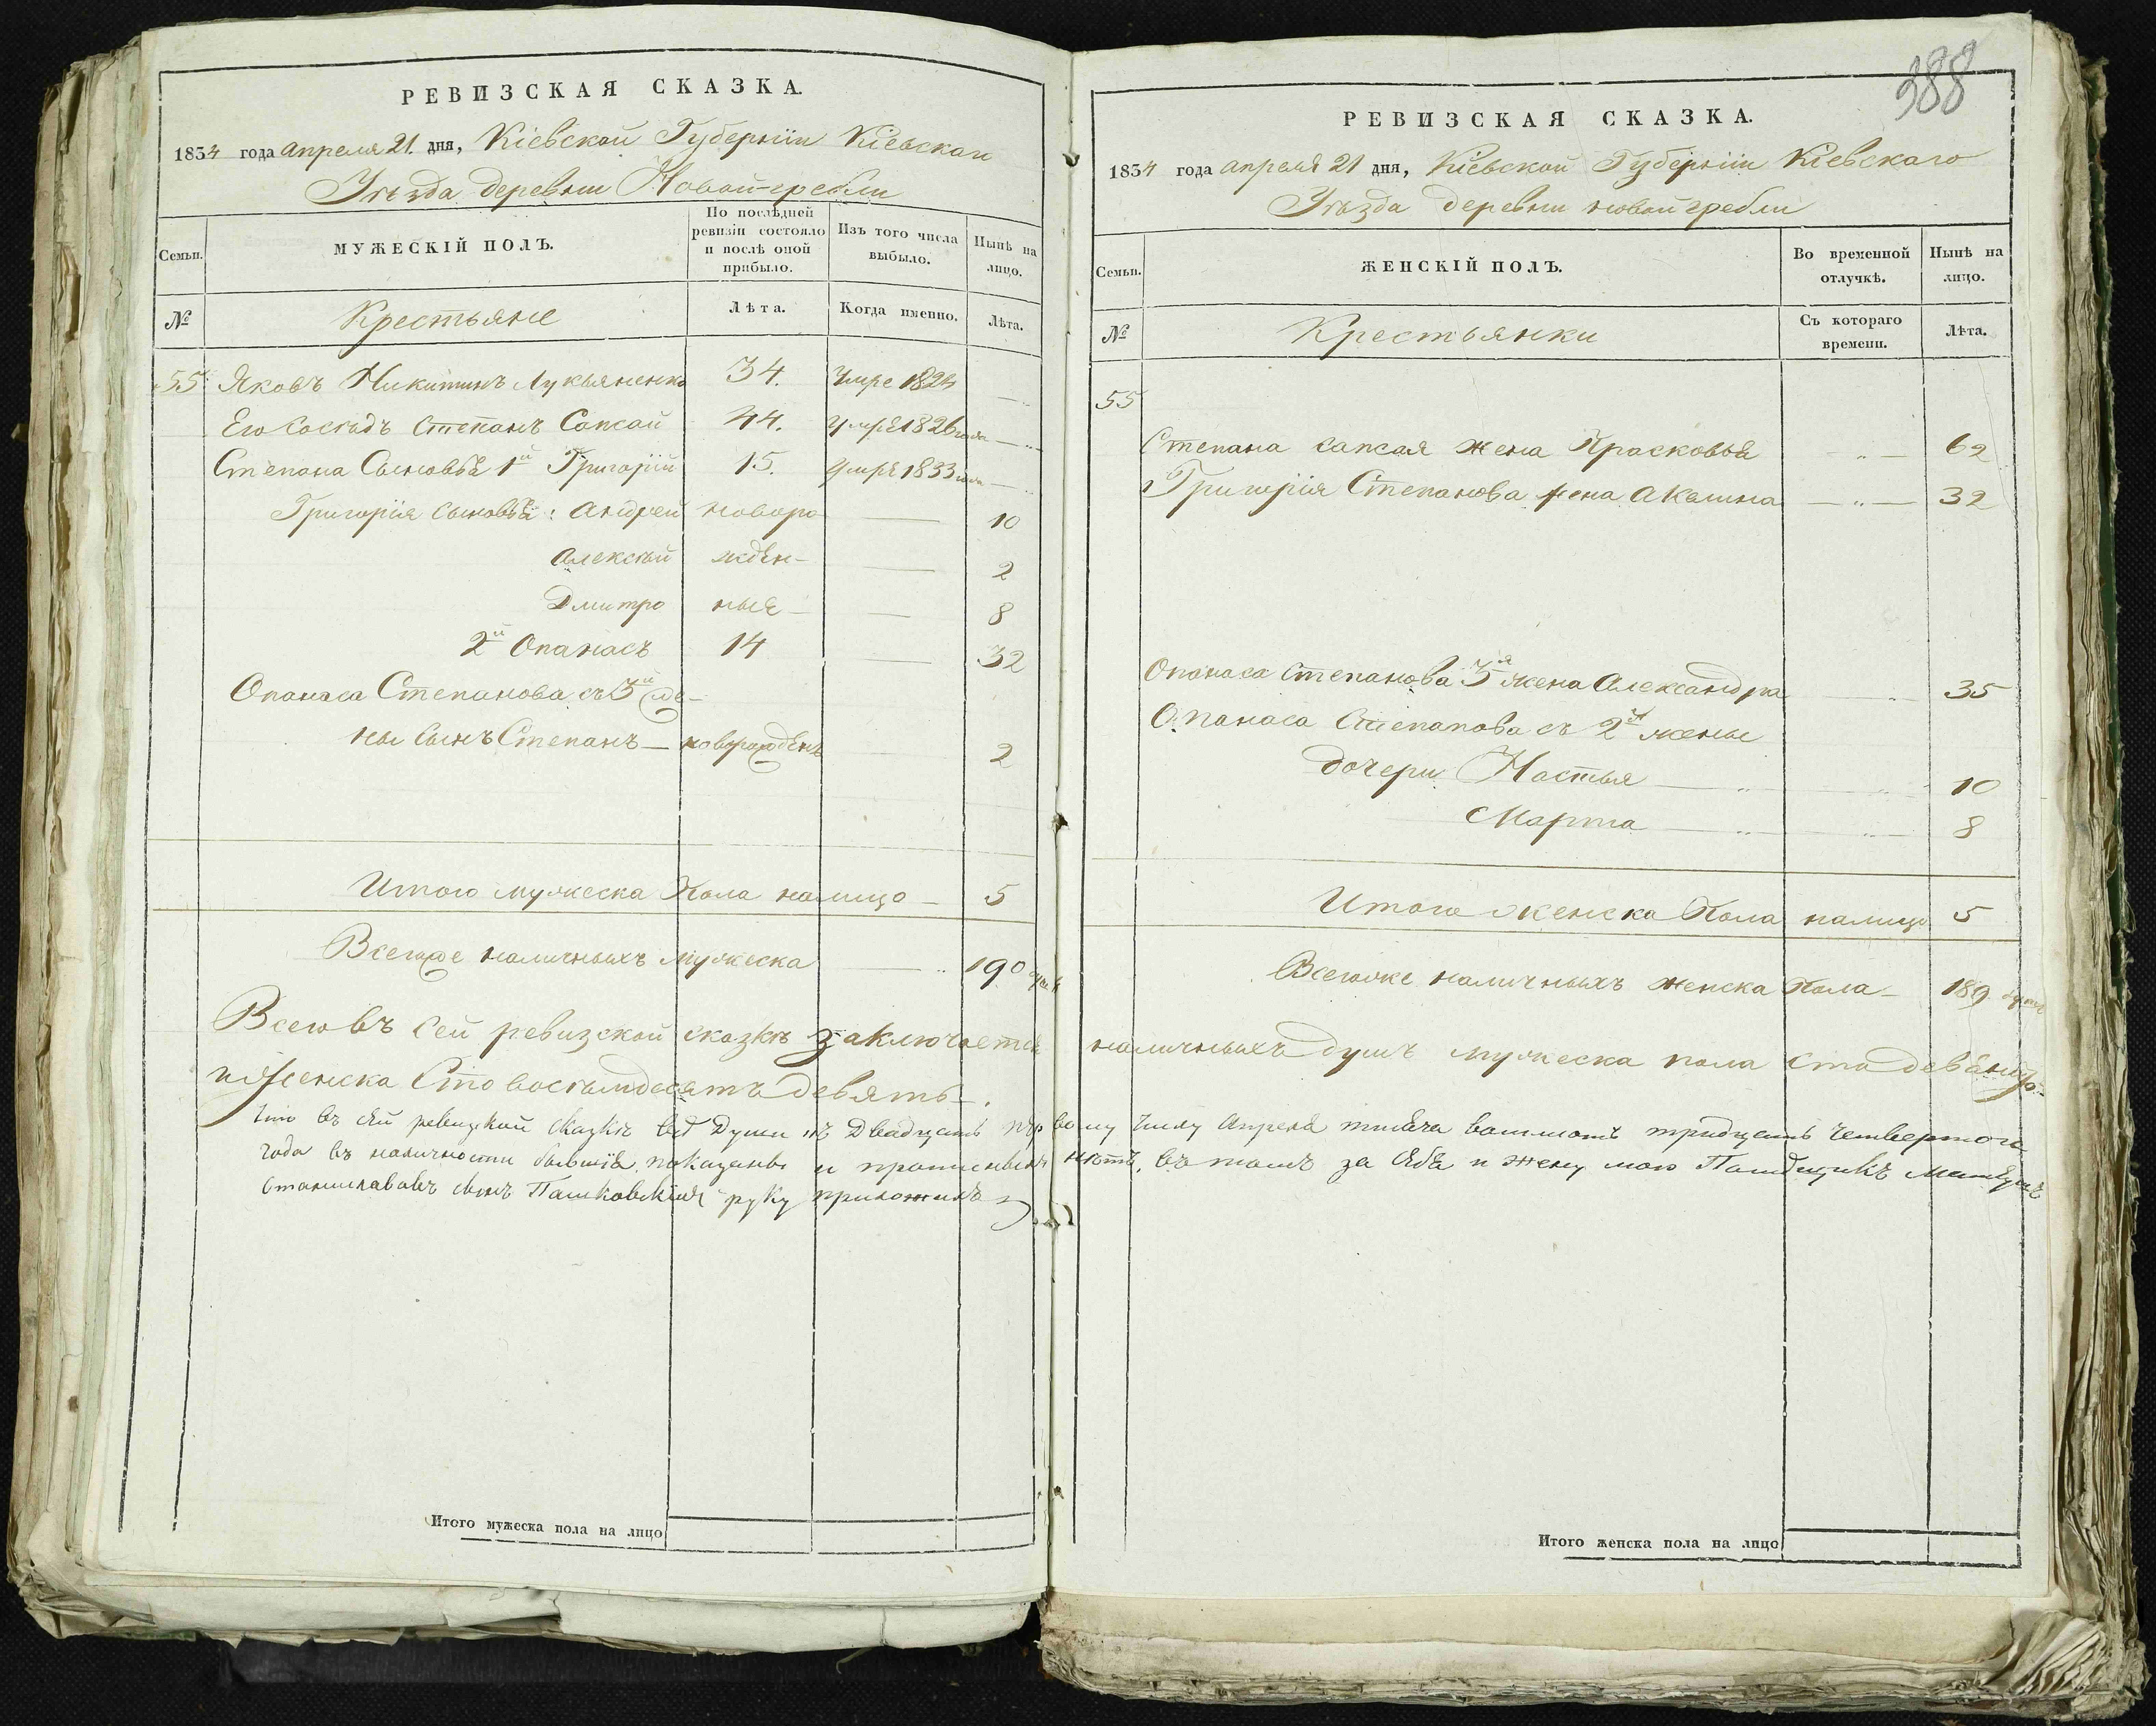 РЕВИЗСКАЯ СКАЗКА.
1834 года апреля 21. дня, Кіевской Губерніи Кіевскаго
Уѣзда деревни Новой-гребли
Семьи.
МУЖЕСКІЙ ПОЛЪ.
По послѣдней ревизіи состояло и послѣ оной прибыло.
Изъ того числа выбыло.
Нынѣ на лицо.
№
Крестьяне
Лѣта.
Когда именно.
Лѣта.
55 Яковъ Никитинъ Лукьяненко 34. Умре 1824
Его Сосѣдъ Степанъ Сапсай 44. Умре 1826 года
Степана Сыновья 1й Григорій 15. Умре 1833 года
Григорія сыновья: Андрей новоро 10
Алексѣй жден- 2
Дмитро ные 8
2й Опанасъ 14 32
Опанаса Степанова съ 3й же-
ны сынъ Степанъ — новорожденъ 2
Итого мужеска Пола налицо 5
Всегоже наличныхъ мужеска 190 душъ
Итого мужеска пола на лицо
388
РЕВИЗСКАЯ СКАЗКА.
1834 года апреля 21 дня, Кіевской Губерніи Кіевскаго
Уѣзда деревни новой гребли
Семьи.
ЖЕНСКІЙ ПОЛЪ.
Во временной отлучкѣ.
Нынѣ на лицо.
№
Крестьянки
Съ котораго времени.
Лѣта.
55
Степана сапсая жена Прасковья 62
Григорія Степанова жена Акалина 32
Опанаса Степанова 3я жена Александра 35
Опанаса Степанова съ 2й жены
дочери Настья 10
Марта 8
Итого женска Пола налицо 5
Всегоже наличныхъ женска Пола 189 душъ
Всего въ сей ревизской сказкѣ заключается наличныхъ душъ мужеска пола сто девяносто
и женска Сто восѣмдесятъ девять.
Что въ сей ревизкой сказкѣ всѣ Души къ Двадцать первому числу Апреля тысяча восимсотъ тридцать четвертого
года въ наличности бывшія показаны и прописныхъ нѣтъ, въ томъ за себя и жену мою Помѣщикъ
Станиславовъ сынъ Пашковскій руку приложилъ
Итого женска пола на лицо